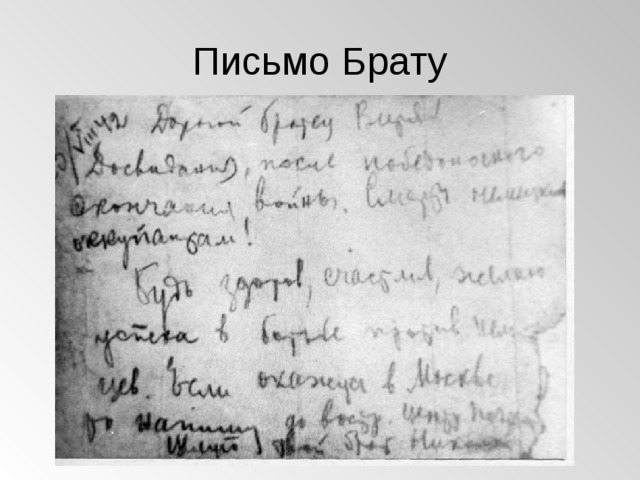 Письмо Брату
VIII 42 Дорогой братец Витя!
Досвидания, после победоносного
окончания войны. Смерть немецким
оккупантам!
Будь здоров, счастлив, желаю
успеха в борьбе против нем-
цев. Если окажусь в Москве
то напишу до востр.
твой брат